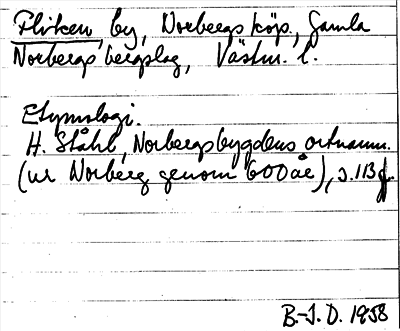 Fliken, by, Norbergs köp., Gamla
Norbergs bergslag, Västm. l.
Etymologi.
H. Ståhl, Norbergsbygdens ortnamn.
(ur Norberg genom 600 år), s. 113 f.
B.-I. D. 1958